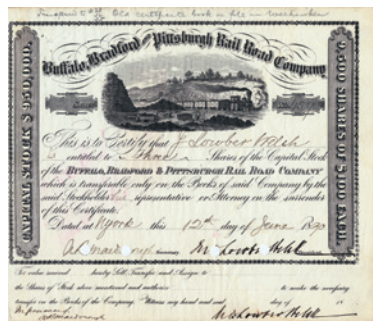 Old certificate book on file in
Buffalo, Bradford and Pittsburgh Rail Road Company
CAPITAL STOCK $ 950,000.
9,500 SHARES OF $100 EACH.
This is to Certify that J Lowber Welsh
is entitled to Three Shares of the Capital Stock
of the BUFFALO, BRADFORD & PITTSBURGH RAIL ROAD COMPANY
which is transferable only on the Books of said Company by the
said Stockholder his representative or Attorney on the surrender
of this Certificate.
Dated at N York this 12th day of June 1890
Secretary
For value received hereby Sell, Transfer and Assign to
the Shares of Stock above mentioned and authorize to make the necessary
transfer on the Books of the Company. Witness my hand and seal day of 18
In presence of